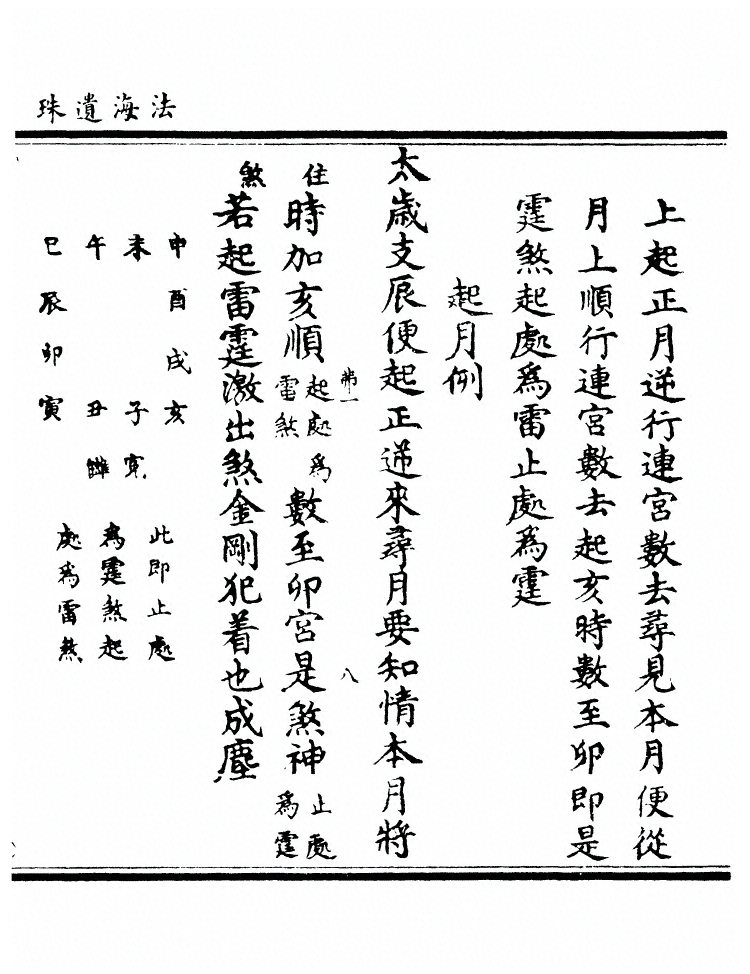 法海遺珠
上起正月逆行連宮數去尋見本月便從
月上順行連宮數去起亥時數至卯即是
霆煞起處爲雷止處爲霆
起月例
太歲支辰便起正逆來尋月要知情本月將
住時加亥順起處爲雷煞數至卯宮是煞神止處爲霆
煞若起雷霆激出煞金剛犯着也成塵
第一
八
申酉戌亥
未 子寅
午 丑
巳辰卯寅
此即止處
爲霆煞起
處爲雷煞